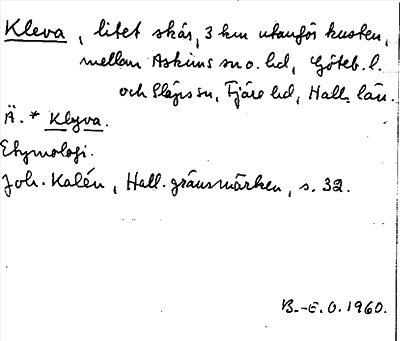 Kleva, litet skär, 3 km utanför kusten,
mellan Askims sn o. hd, Göteb. l.
och Släps sn, Fjäre hd, Hall. län.
Ä. * Klyva.
Etymologi.
Joh. Kalén, Hall. gränsmärken, s. 32.
B.-E. O. 1960.